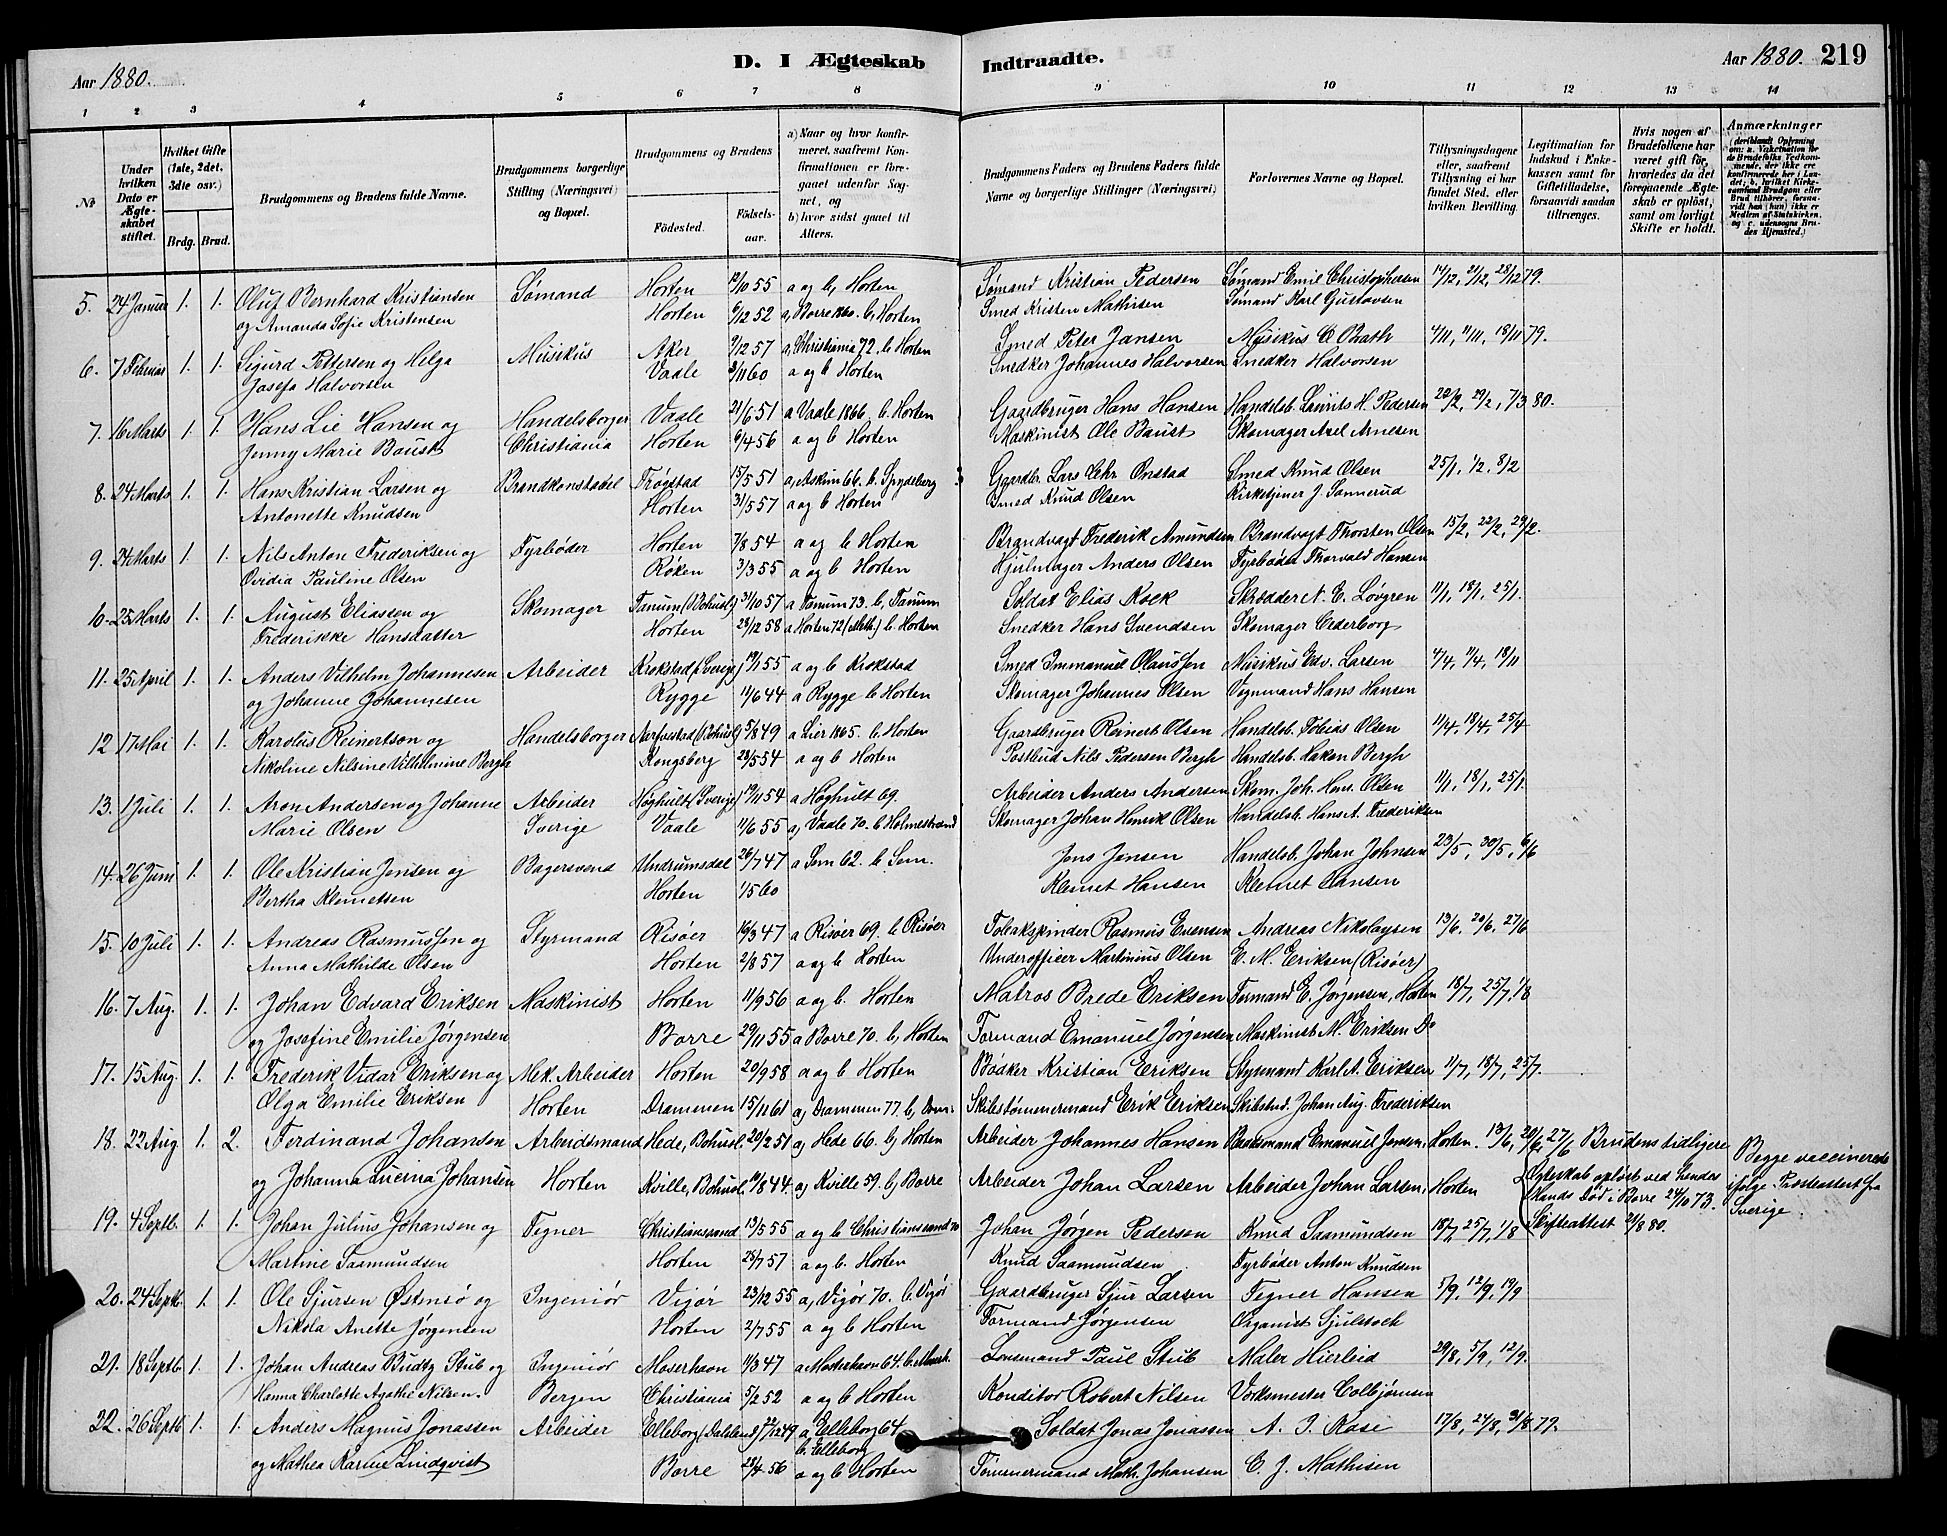 Aar 1880.
D. I Ægteskab Indtraadte.
Aar 1880. 219
1 2 3 4 5 6 7 8 9 10 11 12 13 14
№
Under hvilken Dato er Ægteskabet stiftet.
Hvilket Gifte (1ste, 2det, 3die osv.)
Brdg. Brud.
Brudgommens og Brudens fulde Navne.
Brudgommens borgerlige Stilling (Næringsvei) og Bopæl.
Brudgommens og Brudens
Fødested. Fødselsaar.
a) Naar og hvor konfirmeret, saafremt Konfirmationen er foregaaet udenfor Sognet, og
b) hvor sidst gaaet til Alters.
Brudgommens Faders og Brudens Faders fulde Navne og borgerlige Stillinger (Næringsvei)
Forlovernes Navne og Bopæl.
Tillysningsdagene eller, saafremt Tillysning ei har fundet Sted, efter hvilken Bevilling.
Legitimation for Indskud i Enkekassen samt for Giftetilladelse, forsaavidt saadan tiltrænges.
Hvis nogen af Brudefolkene har været gift før, hvorledes da det foregaaende Ægteskab er opløst, samt om lovligt Skifte er holdt.
Anmærkninger (deriblandt Oplysning om: a. Vakcination for de Brudefolks Vedkommende, der ikke ere konfirmerede her i Landet; b. hvilket Kirkesamfund Brudgom eller Brud tilhører, forsaavidt han (hun) ikke er Medlem af Statskirken, og c. udensogns Brudes Hjemsted.)
5. 24 Januar 1. 1. Oluf Bernhard Kristiansen Sømand Horten 12/10 55 a og b, Horten Sømand Kristian Pedersen Sømand Emil Christophersen 14/12, 21/12, 28/12 79.
og Amanda Sofie Kristensen Horten 6/12 52 a, Borre 1860. b, Horten Smed Kristen Mathisen Sømand Karl Gustavsen
6. 7 Februar 1. 1. Sigurd Pettersen og Helga Musikus Aker 9/12 57 a, Christiania 72. b Horten Smed Peter Jansen Musikus C Bath 4/11, 11/11, 18/11 79.
Josefa Halvorsen Vaale 3/11 60 a og b Horten Snedker Johannes Halvorsen Snedker Halvorsen
7. 16 Marts 1. 1. Hans Lie Hansen og Handelsborger Vaale 21/6 51 a Vaale 1866. b. Horten Gaardbruger Hans Hansen Handelsb. Laurits H. Pedersen 22/2, 29/2, 7/3 80.
Jenny Marie Baust Christiania Horten 6/4 56 a og b Horten Maskinist Ole Baust Skomager Axel Arnesen
8. 24 Marts 1. 1. Hans Kristian Larsen og Brandkonstabel Trøgstad 15/5 51 a, Askim 66. b. Spydeberg Gaardbr. Lars Chr. Onstad Smed Knud Olsen 25/1, 1/2, 8/2
Antonette Knudsen Horten 31/5 57 a og b Horten Smed Knud Olsen Kirketjener J. Sannerud
9. 24 Marts 1. 1. Nils Anton Frederiksen og Fyrbøder Horten 7/8 54 a og b Horten Brandvagt Frederik Amundsen Brandvagt Thorsten Olsen 15/2, 22/2, 29/2.
Ovidia Pauline Olsen Røken 3/3 55 a og b Horten Hjulmager Anders Olsen Fyrbøder Thorvald Hansen
10. 25 Marts 1. 1. August Eliassen og Skomager Tanum (Bohusl) 31/10 57 a Tanum 73. b, Tanum Soldat Elias Kock Skrædder N. E. Løvgren 11/1, 18/1, 25/1.
Frederikke Hansdatter Horten 28/12 58 a Horten 72 (Meth.) b Horten Snedker Hans Svendsen Skomager Cederborg
11. 25 April 1. 1. Anders Vilhelm Johannesen Arbeider Krokstad (Sverige) 19/1 55 a og b Krokstad Smed Immanuel Olaussen Musikus Edv. Larsen 4/4, 11/4, 18/11
og Johanne Johannesen Rygge 11/6 44 a Rygge b Horten Skomager Johannes Olsen Vognmand Hans Hansen
12 17 Mai 1. 1. Karolus Reinertson og Handelsborger (Bohusl) 5/8 49 a Lier 1865. b. Horten Gaardbruger Reinert Olsen Handelsb. Tobias Olsen 11/4, 18/4, 25/4
Nikoline Nilsine Vilhelmine Bergh Kongsberg 28/5 54 a og b Horten Postbud Nils Pedersen Bergh Handelsb. Hakon Bergh
13. 1 Juli 1. 1. Aron Andersen og Johanne Arbeider Høghult (Sverige) 19/11 54 a Høghult 69. Arbeider Anders Andersen Skom. Joh. Hans. Olsen 11/1, 18/1, 25/1.
Marie Olsen Sverige Vaale 11/6 55 a, Vaale 70. b Holmestrand Skomager Johan Henrik Olsen Handelsb. Hans A. Frederiksen
14. 26 Juni 1. 1. Ole Kristian Jensen og Bagersvend Undrumsdal 26/7 47 a Sem 62. b Sem. Jens Jensen Handelsb. Johan Johnsen 23/5, 30/5, 6/6
Bertha Klemetsen Horten 1/5 60 Klemet Hansen Klemet Hansen
15. 10 Juli 1. 1. Andreas Rasmussen og Styrmand Risøer 19/3 47 a Risøer 69. b Risøer Tobakspinder Rasmus Evensen Andreas Nikolaysen 13/6. 20/6, 27/6
Anna Mathilde Olsen Horten 2/8 57 a og b Horten Underofficer Martinius Olsen E. M. Eriksen (Risøer)
16. 7 Aug. 1. 1. Johan Edvard Eriksen Maskinist Horten 11/9 56 a og b. Horten Matros Brede Eriksen Formand E. Jørgensen, Horten 18/7, 25/7, 1/8
og Josefine Emilie Jørgensen Borre 29/11 55 a Borre 70. b, Horten Formand Emanuel Jørgensen Maskinist M. Eriksen Do
17. 15 Aug. 1. 1. Frederik Vidar Eriksen og Mek. Arbeider Horten 20/9 58 a og b Horten Bødker Kristian Eriksen Styrmand Karl A. Eriksen 11/7, 18/7, 25/7.
Olga Emilie Eriksen Horten Drammen 15/11 61 a, Drammen 77. b, Dram. Skibstømmermand Erik Eriksen Skibstud. Johan Aug. Frederiksen
18. 22 Aug 1. 2. Ferdinand Johansen Arbeidsmand Hede, Bohusl. 20/2 51 a, Hede 66. b, Horten Arbeider Johannes Hansen Emanuel Jensen, Horten. 13/6, 20/6, 27/6 Brudens tidligere Begge vaccinerede
og Johanna Lucina Johansen Horten Kville, Bohusl. 19/8 44. a, Kville 59. b, Borre Arbeider Johan Larsen Arbeider Johan Larsen, Horten Egteskab opløst ved hendes Mands Død i Borre 24/10 73. ifølge Præsteattest fra Sverige.
19. 4 Septb. 1. 1. Johan Julius Johansen og Tegner Christianssand 13/5 55 a og b Christianssand 70 Johan Jørgen Pedersen Knud Saamundsen 18/7, 25/7, 1/8 Skifteattest 21/8 80.
Martine Saamundsen Horten 25/7 57 a og b. Horten Knud Saamundsen Fyrbøder Anton Knudsen
20. 24 Septb. 1. 1. Ole Sjursen Østensø og Ingeniør Vigør 23/12 55 a, Vigør 70. b Vigør Gaardbruger Sjur Larsen Tegner Hansen 5/9, 12/9, 19/9
Nikola Anette Jørgensen Horten 2/7 55 a og b Horten Formand Jørgensen Organist Sjulstock
21. 18 Septb. 1. 1. Johan Andreas Budtz Stub og Ingeniør Moserhavn 11/3 47 a Mosterhavn 64. b. Lensmand Paul Stub Maler Hierleid 29/8, 5/9, 12/9.
Hanna Charlotte Agathe Nilsen. Bergen Christiania 5/2 52 a og b Horten Konditor Robert Nilsen Værksmester Colbjørnsen
22. 26 Septb 1. 1. Anders Magnus Jonassen Arbeider Elleborg (Dalsland) 22/12 49 a, Elleborg 64 b. Elleborg Soldat Jonas Jonassen A. J. Rase 17/8, 24/8, 31/8 79.
og Mathea Karine Lindqvist Borre 28/4 56 a og b Horten Tømmermand Math. Johansen C. J. Mathisen